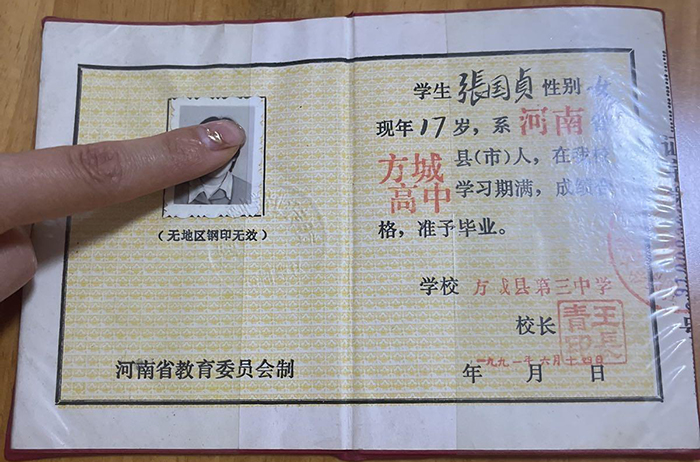 (无地区钢印无效)
河南省教育委员会制
学生 張国貞 性别 女
现年17岁，系 河南省
方城县(市)人，在我校
高中学习期满，成绩合
格，准予毕业。
学校 方城县第三中学
校长
一九九一年六月十四日
年 月 日